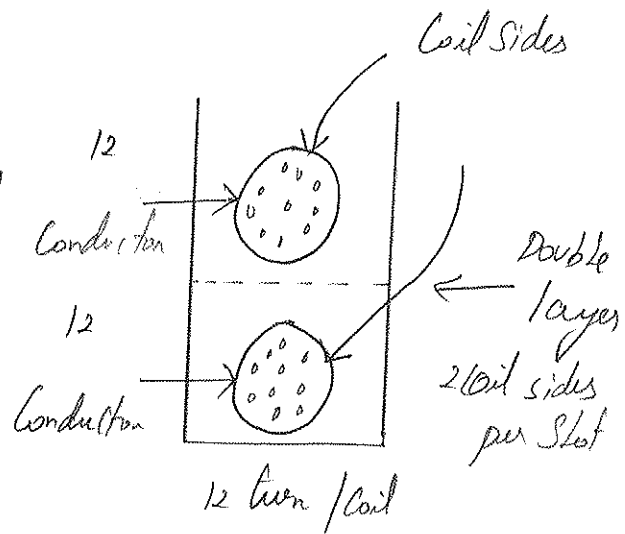 Coil Sides
12
Conductor
12
Conductor
Double
layer
2 Coil sides
per Slot
12 turn / Coil